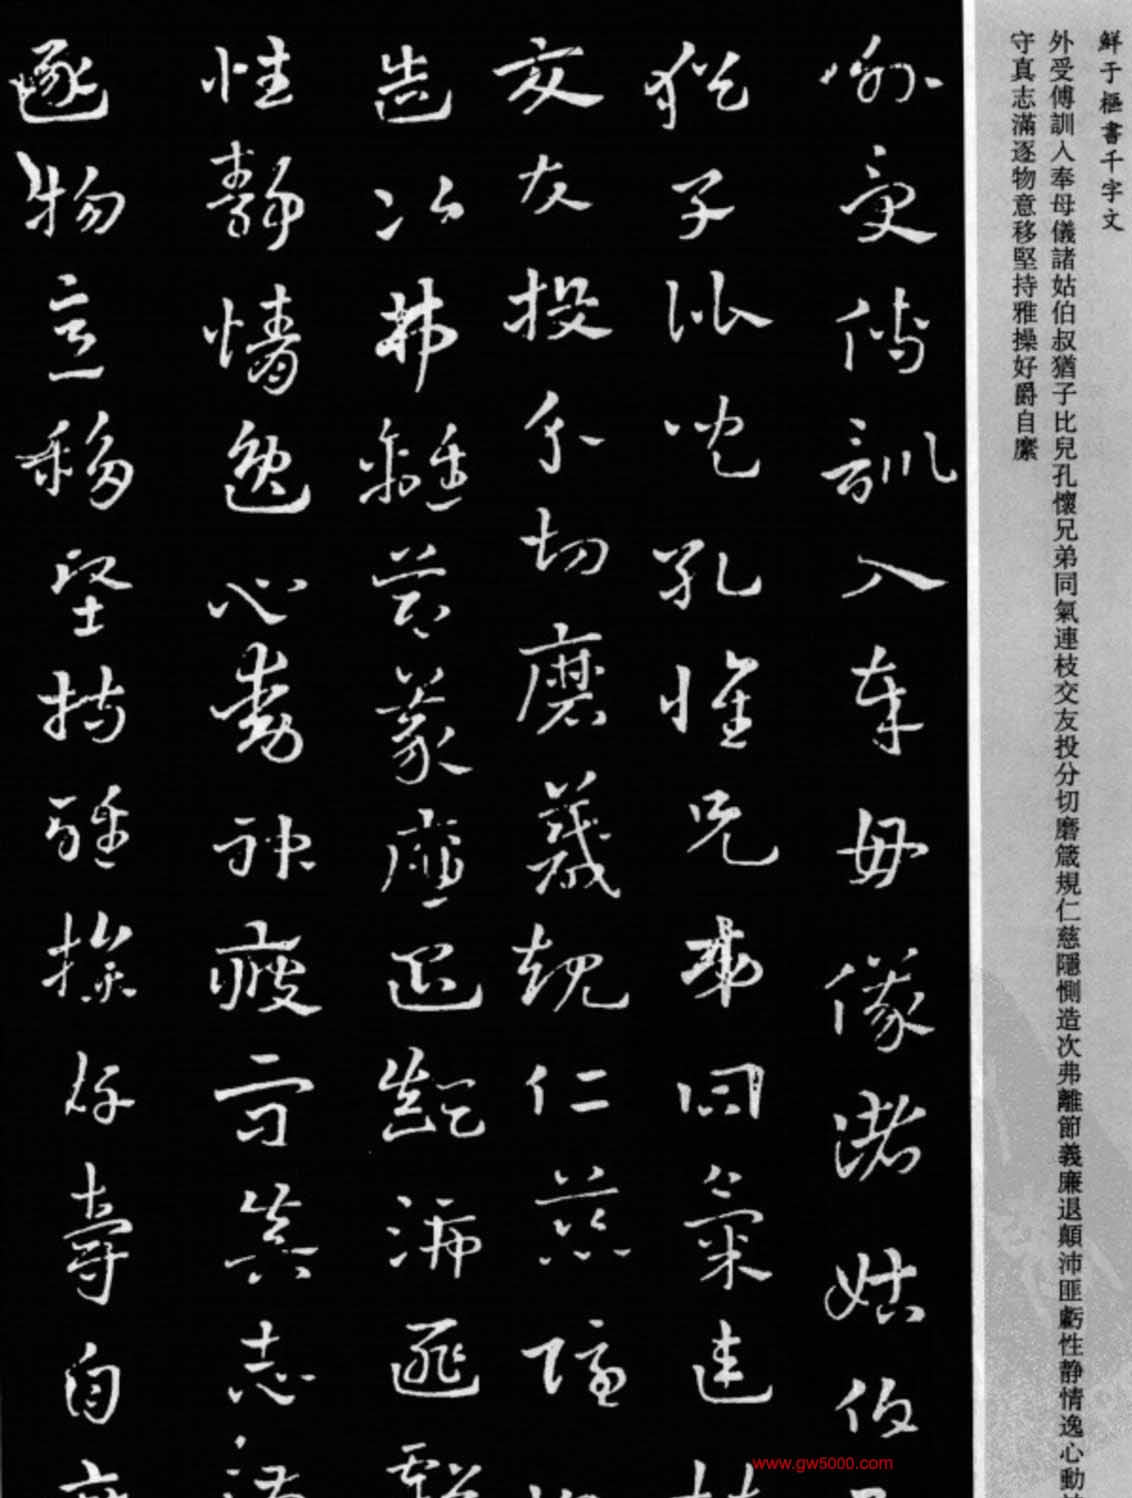 鮮于樞書千字文
外受傅訓入奉母儀諸姑伯叔猶子比兒孔懷兄弟同氣連枝交友投分切磨箴規仁慈隱惻造次弗離節義廉退顛沛匪虧性静情逸心動
守真志滿逐物意移堅持雅操好爵自縻
外受傅訓入奉母儀諸姑伯
猶子比兒孔懷兄弟同氣連枝
交友投分切磨箴規仁慈隱
造次弗離節義廉退顛沛匪虧
性静情逸心動神疲守真志滿
逐物意移堅持雅操好爵自
www.gw5000.com